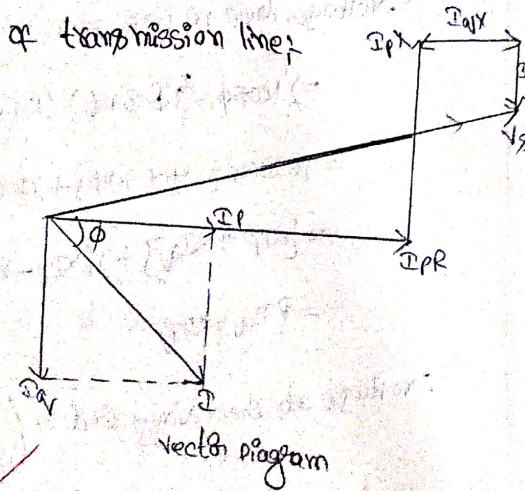 of transmission line;
IpX IqX
Vs
Ip
φ
IpR
Iq I
vector Diagram